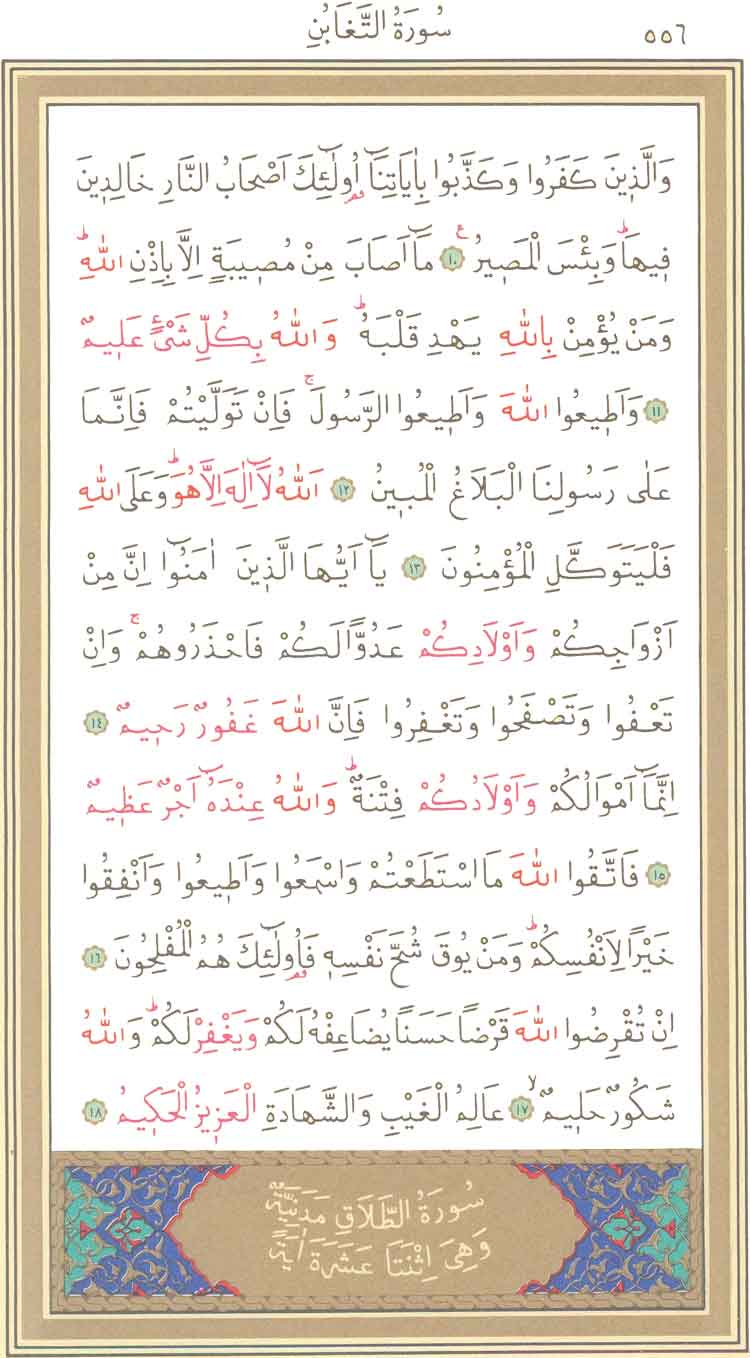 ٥٥٦ سُورَةُ التَّغَابُنِ
وَالَّذٖينَ كَفَرُوا وَكَذَّبُوا بِاٰيَاتِنَٓا اُو۬لٰٓئِكَ اَصْحَابُ النَّارِ خَالِدٖينَ
فٖيهَاؕ وَبِئْسَ الْمَصٖيرُ ࣖ ﴿١٠﴾ مَٓا اَصَابَ مِنْ مُصٖيبَةٍ اِلَّا بِاِذْنِ اللّٰهِؕ
وَمَنْ يُؤْمِنْ بِاللّٰهِ يَهْدِ قَلْبَهُؕ وَاللّٰهُ بِكُلِّ شَيْءٍ عَلٖيمٌ
﴿١١﴾ وَاَطٖيعُوا اللّٰهَ وَاَطٖيعُوا الرَّسُولَۚ فَاِنْ تَوَلَّيْتُمْ فَاِنَّمَا
عَلٰى رَسُولِنَا الْبَلَاغُ الْمُبٖينُ ﴿١٢﴾ اَللّٰهُ لَٓا اِلٰهَ اِلَّا هُوَؕ وَعَلَى اللّٰهِ
فَلْيَتَوَكَّلِ الْمُؤْمِنُونَ ﴿١٣﴾ يَٓا اَيُّهَا الَّذٖينَ اٰمَنُٓوا اِنَّ مِنْ
اَزْوَاجِكُمْ وَاَوْلَادِكُمْ عَدُوًّا لَكُمْ فَاحْذَرُوهُمْۚ وَاِنْ
تَعْفُوا وَتَصْفَحُوا وَتَغْفِرُوا فَاِنَّ اللّٰهَ غَفُورٌ رَحٖيمٌ ﴿١٤﴾
اِنَّمَٓا اَمْوَالُكُمْ وَاَوْلَادُكُمْ فِتْنَةٌؕ وَاللّٰهُ عِنْدَهُٓ اَجْرٌ عَظٖيمٌ
﴿١٥﴾ فَاتَّقُوا اللّٰهَ مَا اسْتَطَعْتُمْ وَاسْمَعُوا وَاَطٖيعُوا وَاَنْفِقُوا
خَيْرًا لِاَنْفُسِكُمْؕ وَمَنْ يُوقَ شُحَّ نَفْسِهٖ فَاُو۬لٰٓئِكَ هُمُ الْمُفْلِحُونَ ﴿١٦﴾
اِنْ تُقْرِضُوا اللّٰهَ قَرْضًا حَسَنًا يُضَاعِفْهُ لَكُمْ وَيَغْفِرْ لَكُمْؕ وَاللّٰهُ
شَكُورٌ حَلٖيمٌۙ ﴿١٧﴾ عَالِمُ الْغَيْبِ وَالشَّهَادَةِ الْعَزٖيزُ الْحَكٖيمُ ﴿١٨﴾
سُورَةُ الطَّلَاقِ مَدَنِيَّةٌ
وَهِيَ اِثْنَتَا عَشَرَةَ اٰيَةً